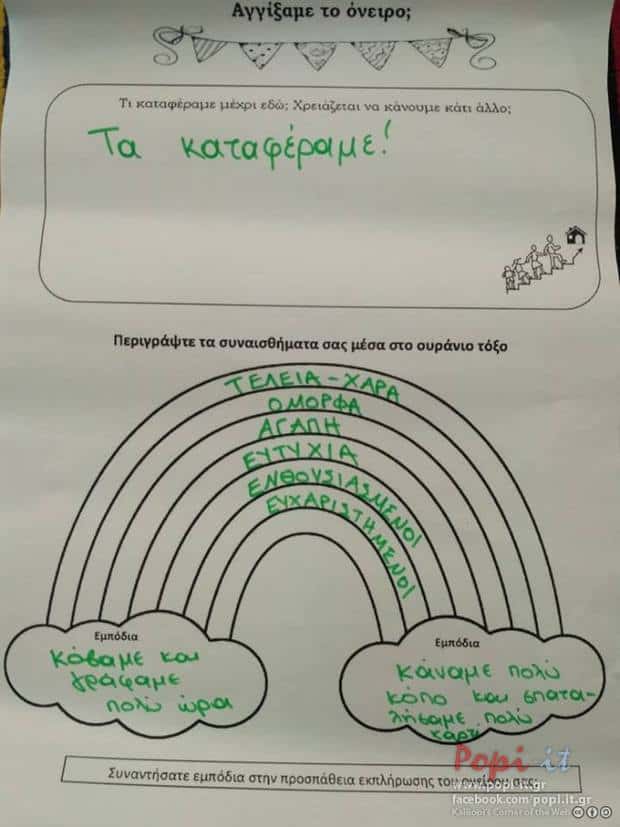 Αγγίξαμε το όνειρο;
Τι καταφέραμε μέχρι εδώ; Χρειάζεται να κάνουμε κάτι άλλο;
Τα καταφέραμε!
Περιγράψτε τα συναισθήματα σας μέσα στο ουράνιο τόξο
ΤΕΛΕΙΑ - ΧΑΡΑ
ΟΜΟΡΦΑ
ΑΓΑΠΗ
ΕΥΤΥΧΙΑ
ΕΝΘΟΥΣΙΑΣΜΕΝΟΙ
ΕΥΧΑΡΙΣΤΗΜΕΝΟΙ
Εμπόδια
κόβαμε και
γράφαμε
πολύ ώρα
Εμπόδια
κάναμε πολύ
κόπο και σπατα-
λήσαμε πολύ
χαρτί
Συναντήσατε εμπόδια στην προσπάθεια εκπλήρωσης του ονείρου σας;
Popi it
www.popi-it.gr
facebook.com/popi.it.gr
Kalliopi's Corner of the Web